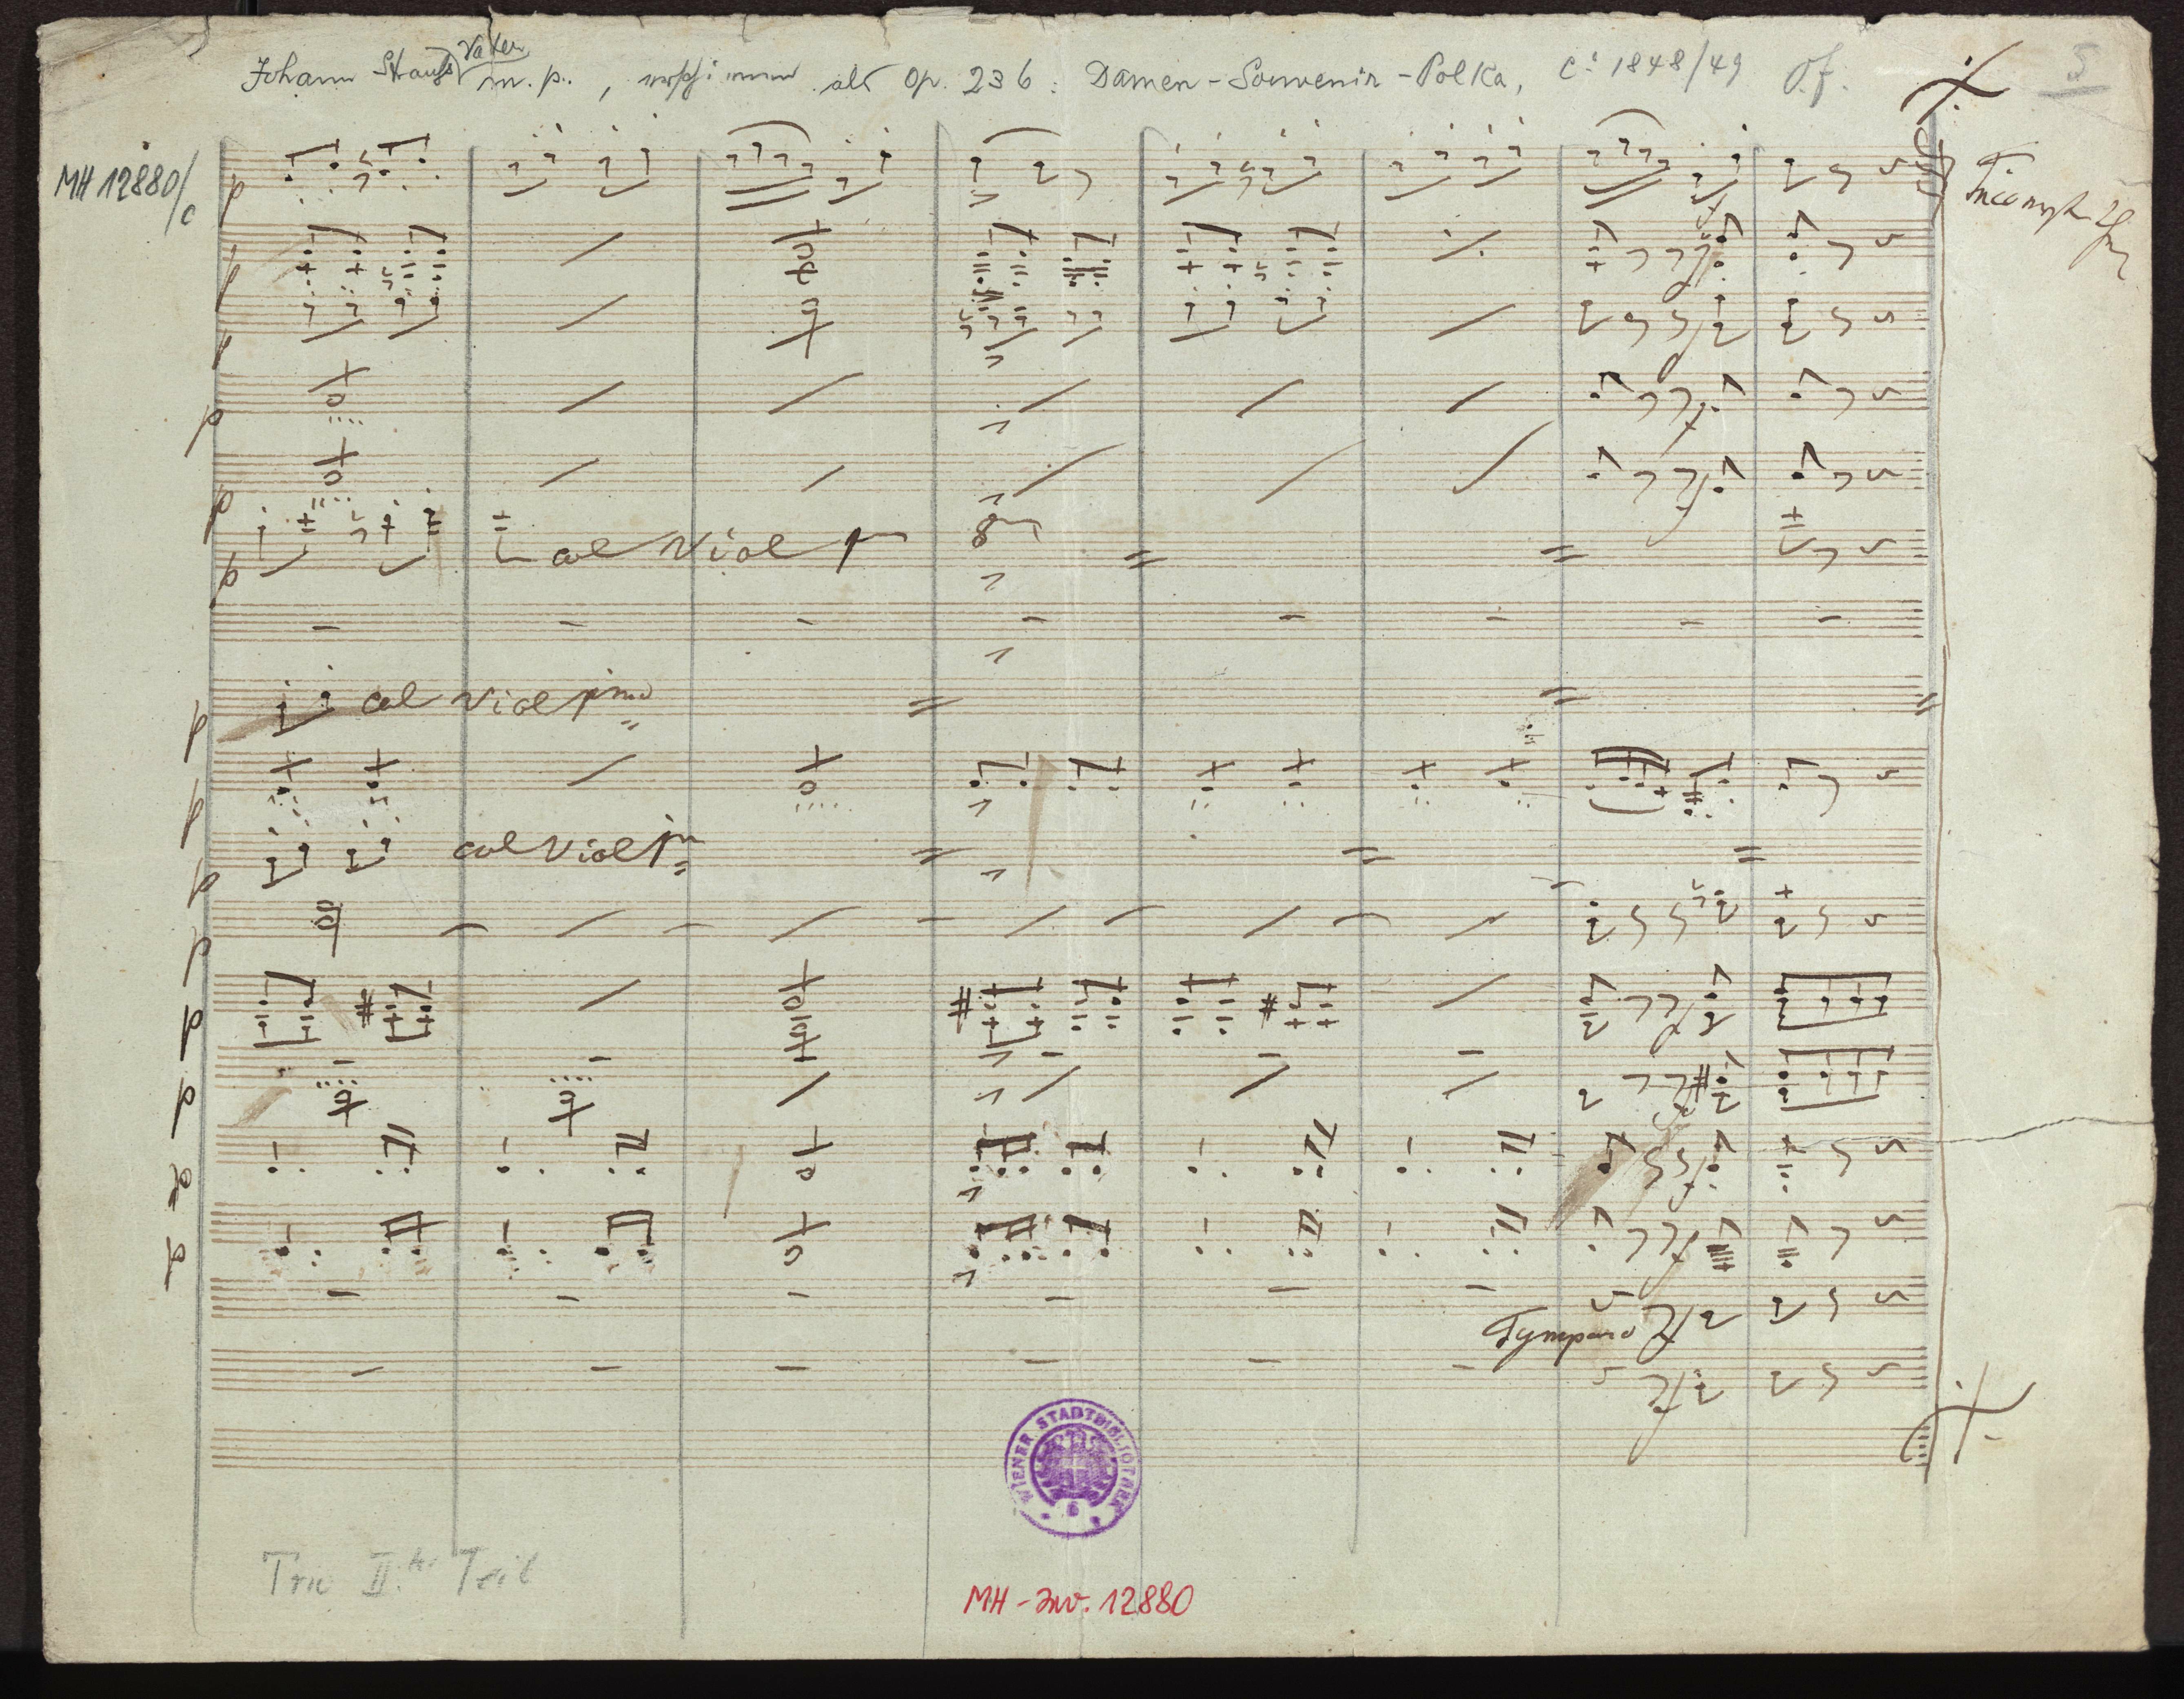 Johann Strauß Vater m. p., erschienen als Op. 236: Damen-Souvenir-Polka, c: 1848/49
5
MH 12880/c
p
p
p
p
p
p
col Viol
8
p
col Viol pmo
p
p
col Viol
p
p
p
Tympano
WIENER STADTBIBLIOTHEK
Trio II. Teil
MH-Inv. 12880